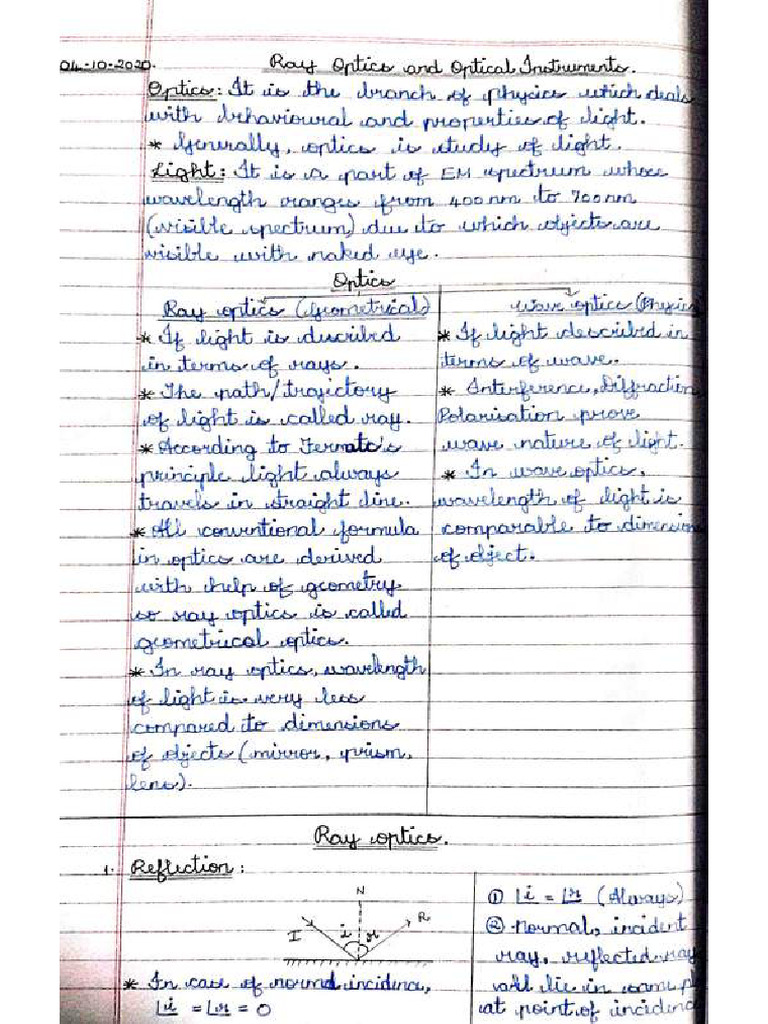 04-10-2020.
Ray Optics and Optical Instruments.
Optics: It is the branch of physics which deals
with behavioural and properties of light.
* Generally, optics is study of light.
Light: It is a part of EM spectrum whose
wavelength ranges from 400nm to 700nm
(visible spectrum) due to which objects are
visible with naked eye.
Optics
Ray optics (Geometrical)
* If light is described
in terms of rays.
* The path/trajectory
of light is called ray.
* According to Fermats's
principle light always
travels in straight line.
* All conventional formula
in optics are derived
with help of geometry
so ray optics is called
geometrical optics.
* In ray optics, wavelength
of light is very less
compared to dimensions
of objects (mirror, prism,
lens).
wave optics (Physics
* If light described in
terms of wave.
* Interference, Diffraction
Polarisation prove
wave nature of light.
* In wave optics,
wavelength of light is
comparable to dimension
of object.
Ray optics.
1. Reflection:
N
I i r R
* In case of normal incidence,
∠i = ∠r = 0
① ∠i = ∠r (Always)
② normal, incident
ray, reflected ray
all lie in same pl
at point of incidence